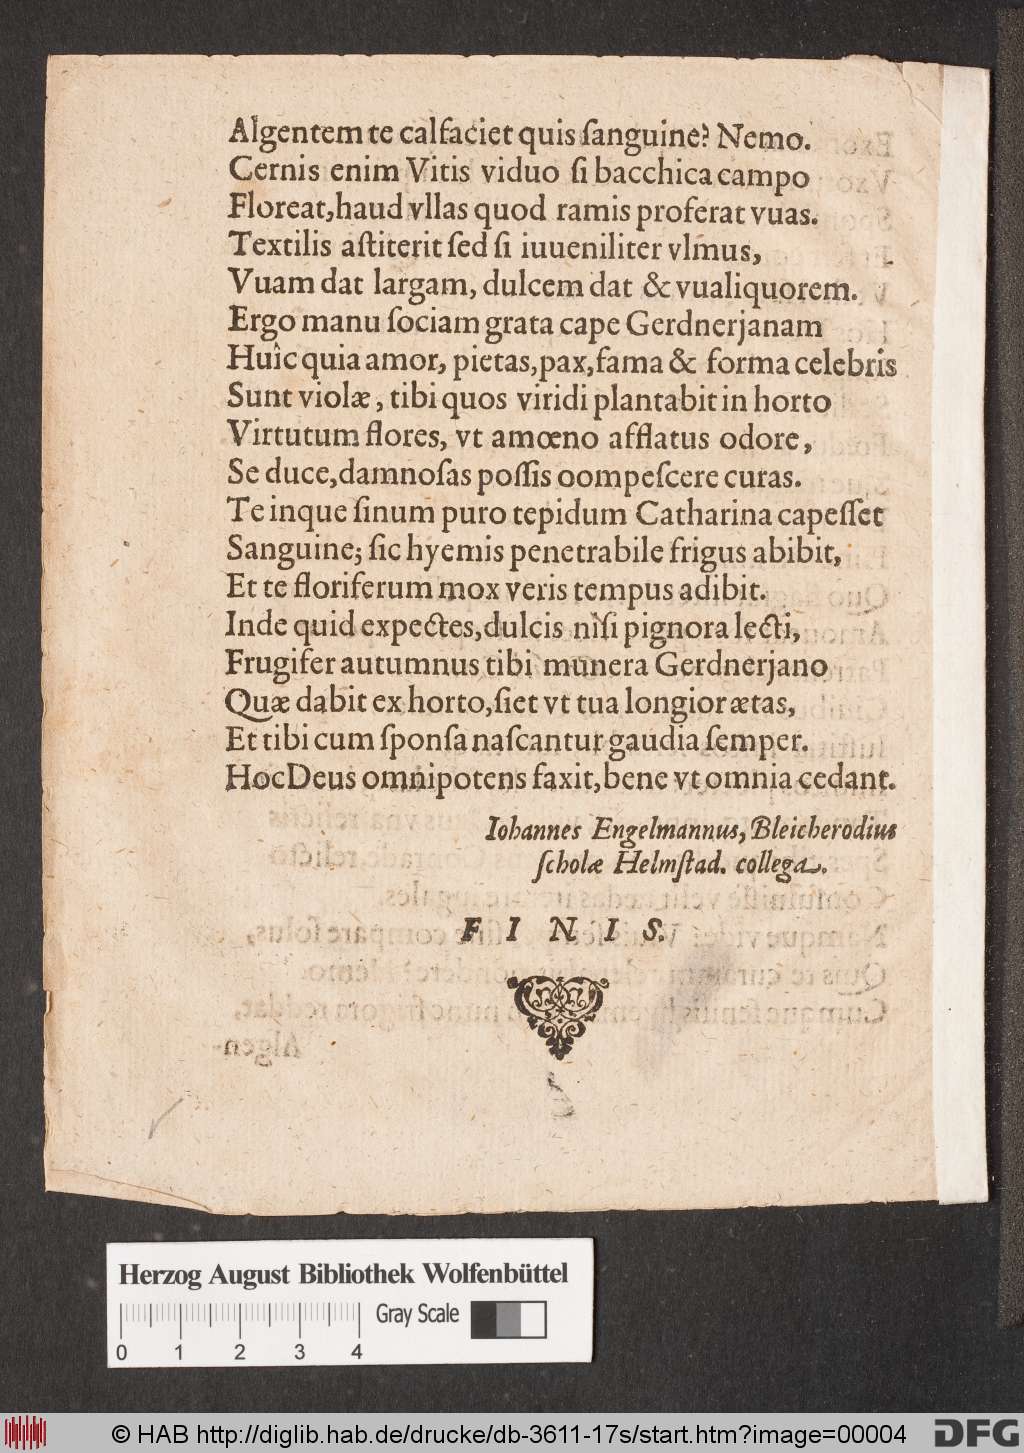 Algentem te calfaciet quis ſanguine? Nemo.
Cernis enim Vitis viduo ſi bacchica campo
Floreat, haud vllas quod ramis proferat vuas.
Textilis aſtiterit ſed ſi iuueniliter vlmus,
Vuam dat largam, dulcem dat & vualiquorem.
Ergo manu ſociam grata cape Gerdnerjanam
Huic quia amor, pietas, pax, fama & forma celebris
Sunt violæ, tibi quos viridi plantabit in horto
Virtutum flores, vt amœno afflatus odore,
Se duce, damnoſas poſſis oompeſcere curas.
Te inque ſinum puro tepidum Catharina capeſſet
Sanguine; ſic hyemis penetrabile frigus abibit,
Et te floriferum mox veris tempus adibit.
Inde quid expectes, dulcis niſi pignora lecti,
Frugifer autumnus tibi munera Gerdnerjano
Quæ dabit ex horto, fiet vt tua longior ætas,
Et tibi cum ſponſa naſcantur gaudia ſemper.
Hoc Deus omnipotens faxit, bene vt omnia cedant.
Iohannes Engelmannus, Bleicherodius
ſcholæ Helmſtad. collega.
F I N I S.
Herzog August Bibliothek Wolfenbüttel
Gray Scale
0 1 2 3 4
© HAB http://diglib.hab.de/drucke/db-3611-17s/start.htm?image=00004
DFG